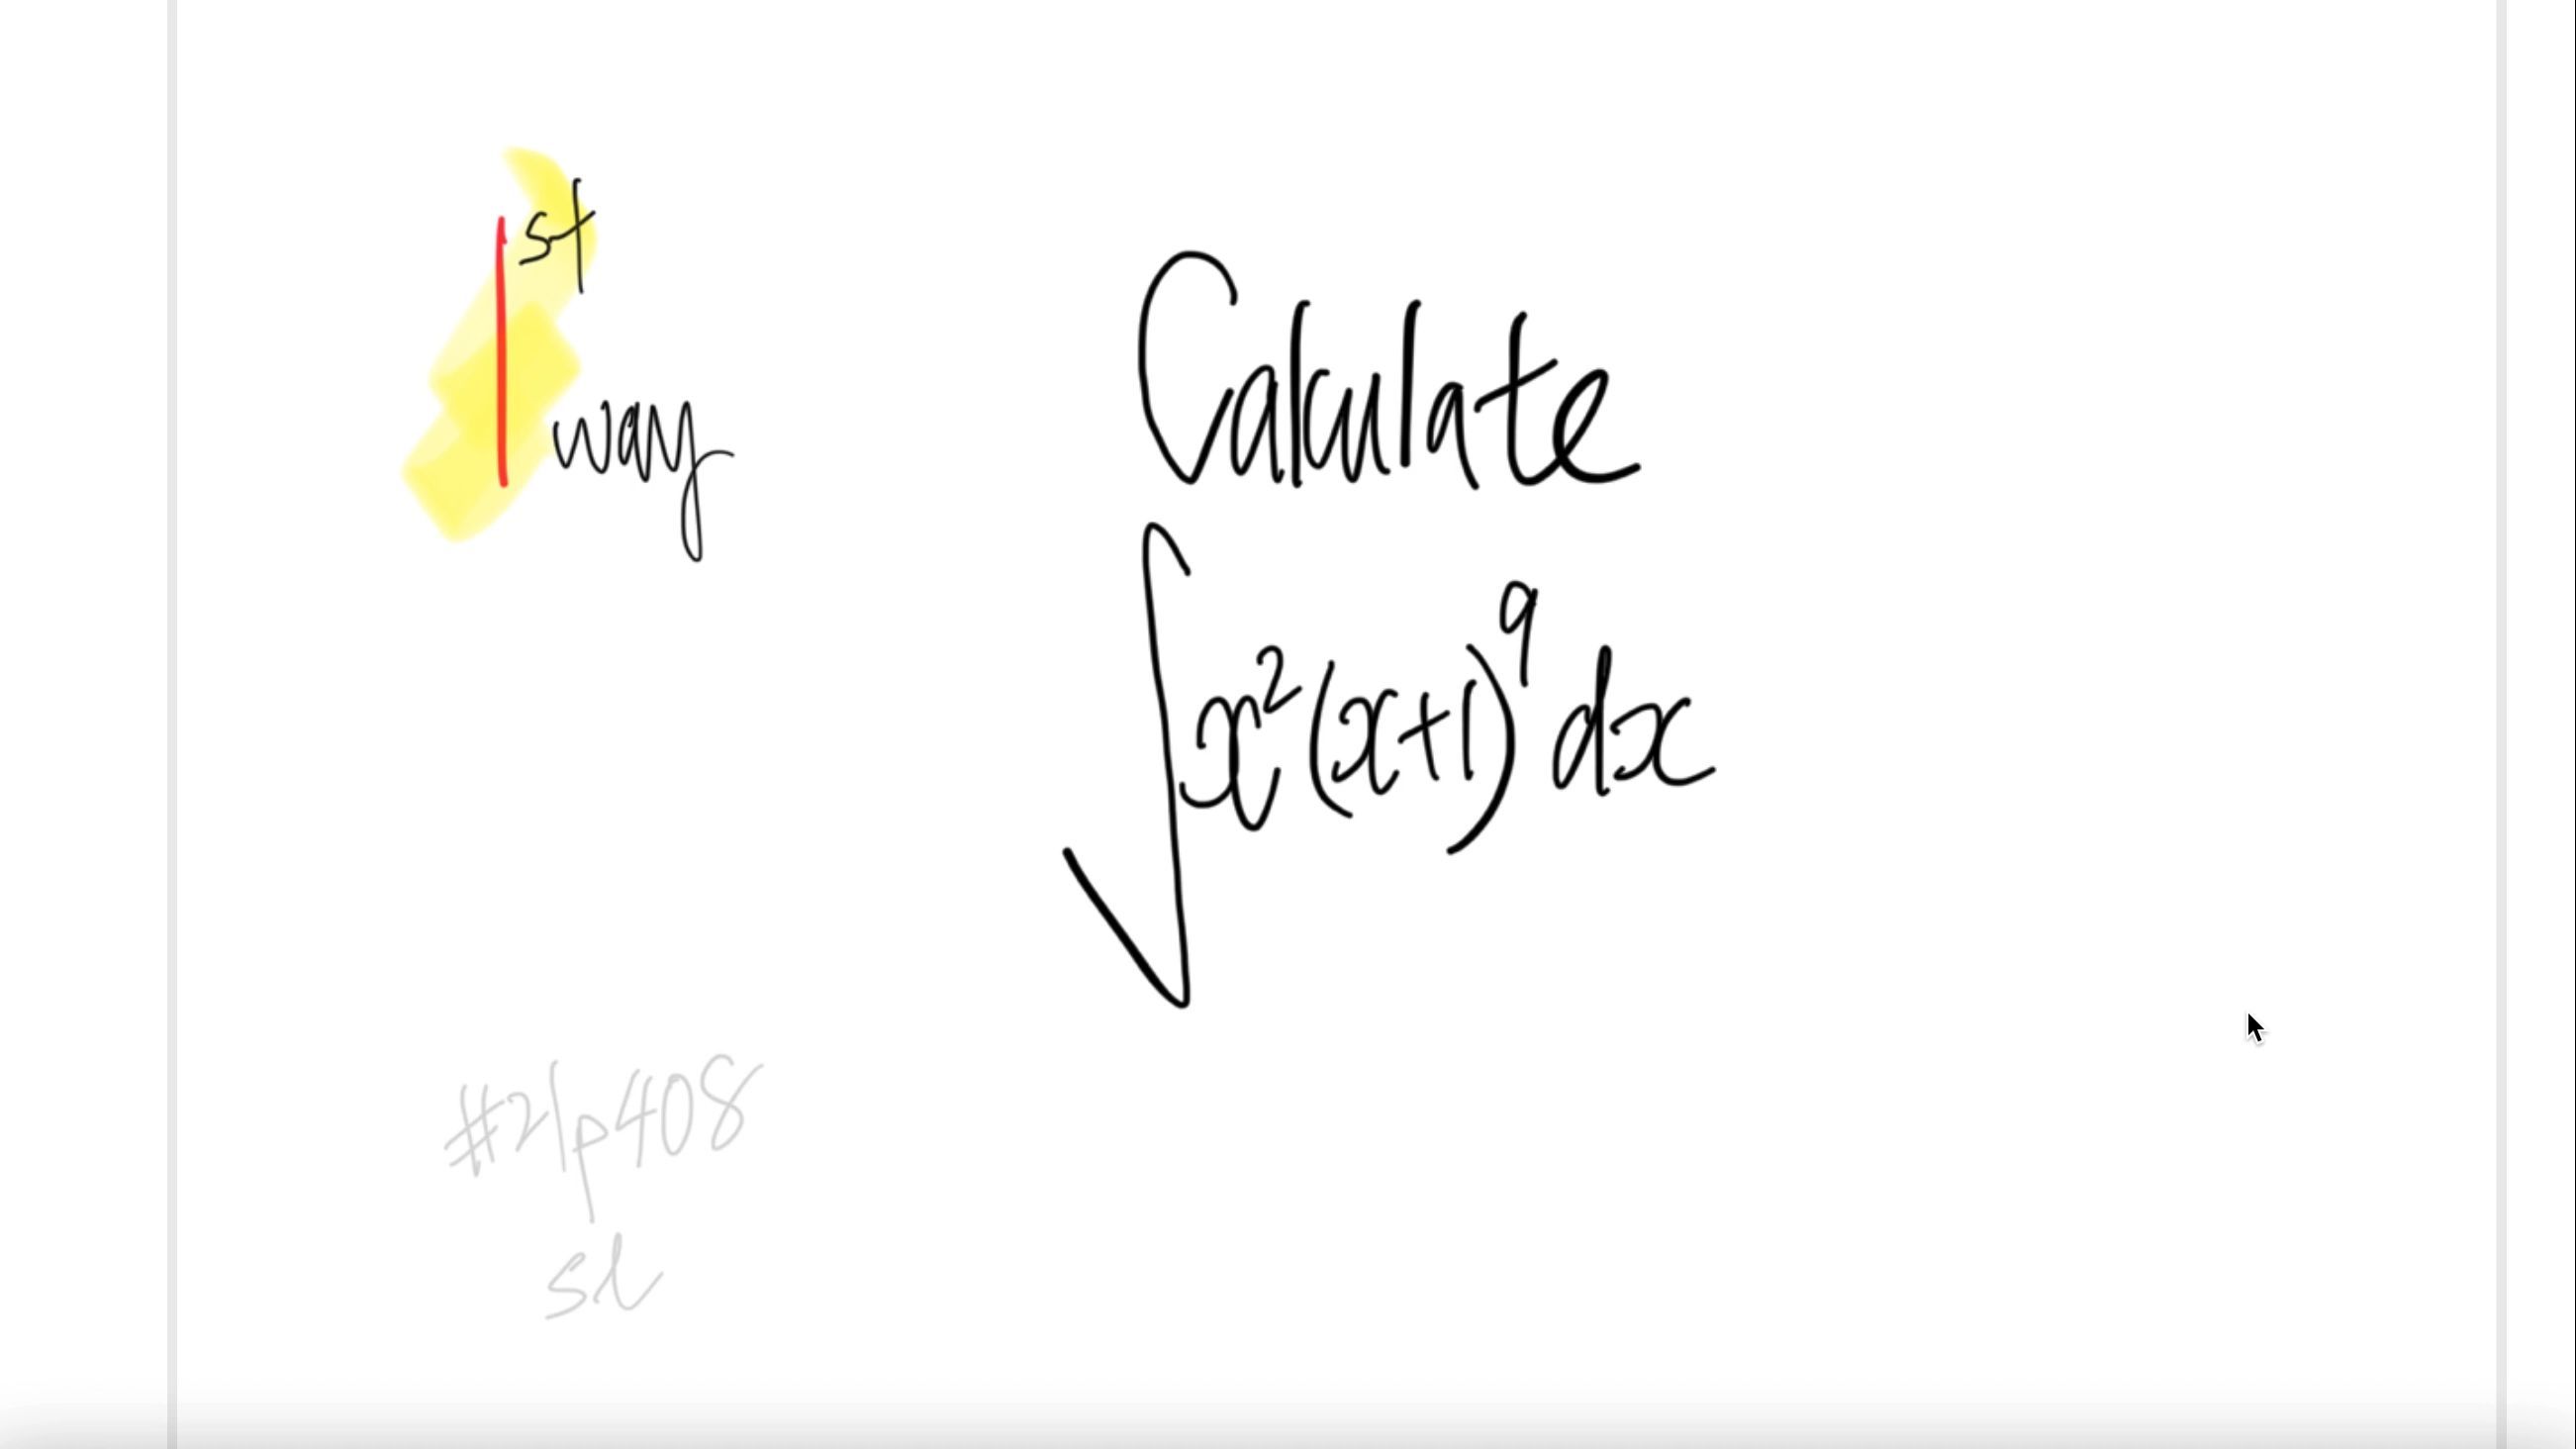 1st way
Calculate
∫x²(x+1)⁹dx
#21p408
sl